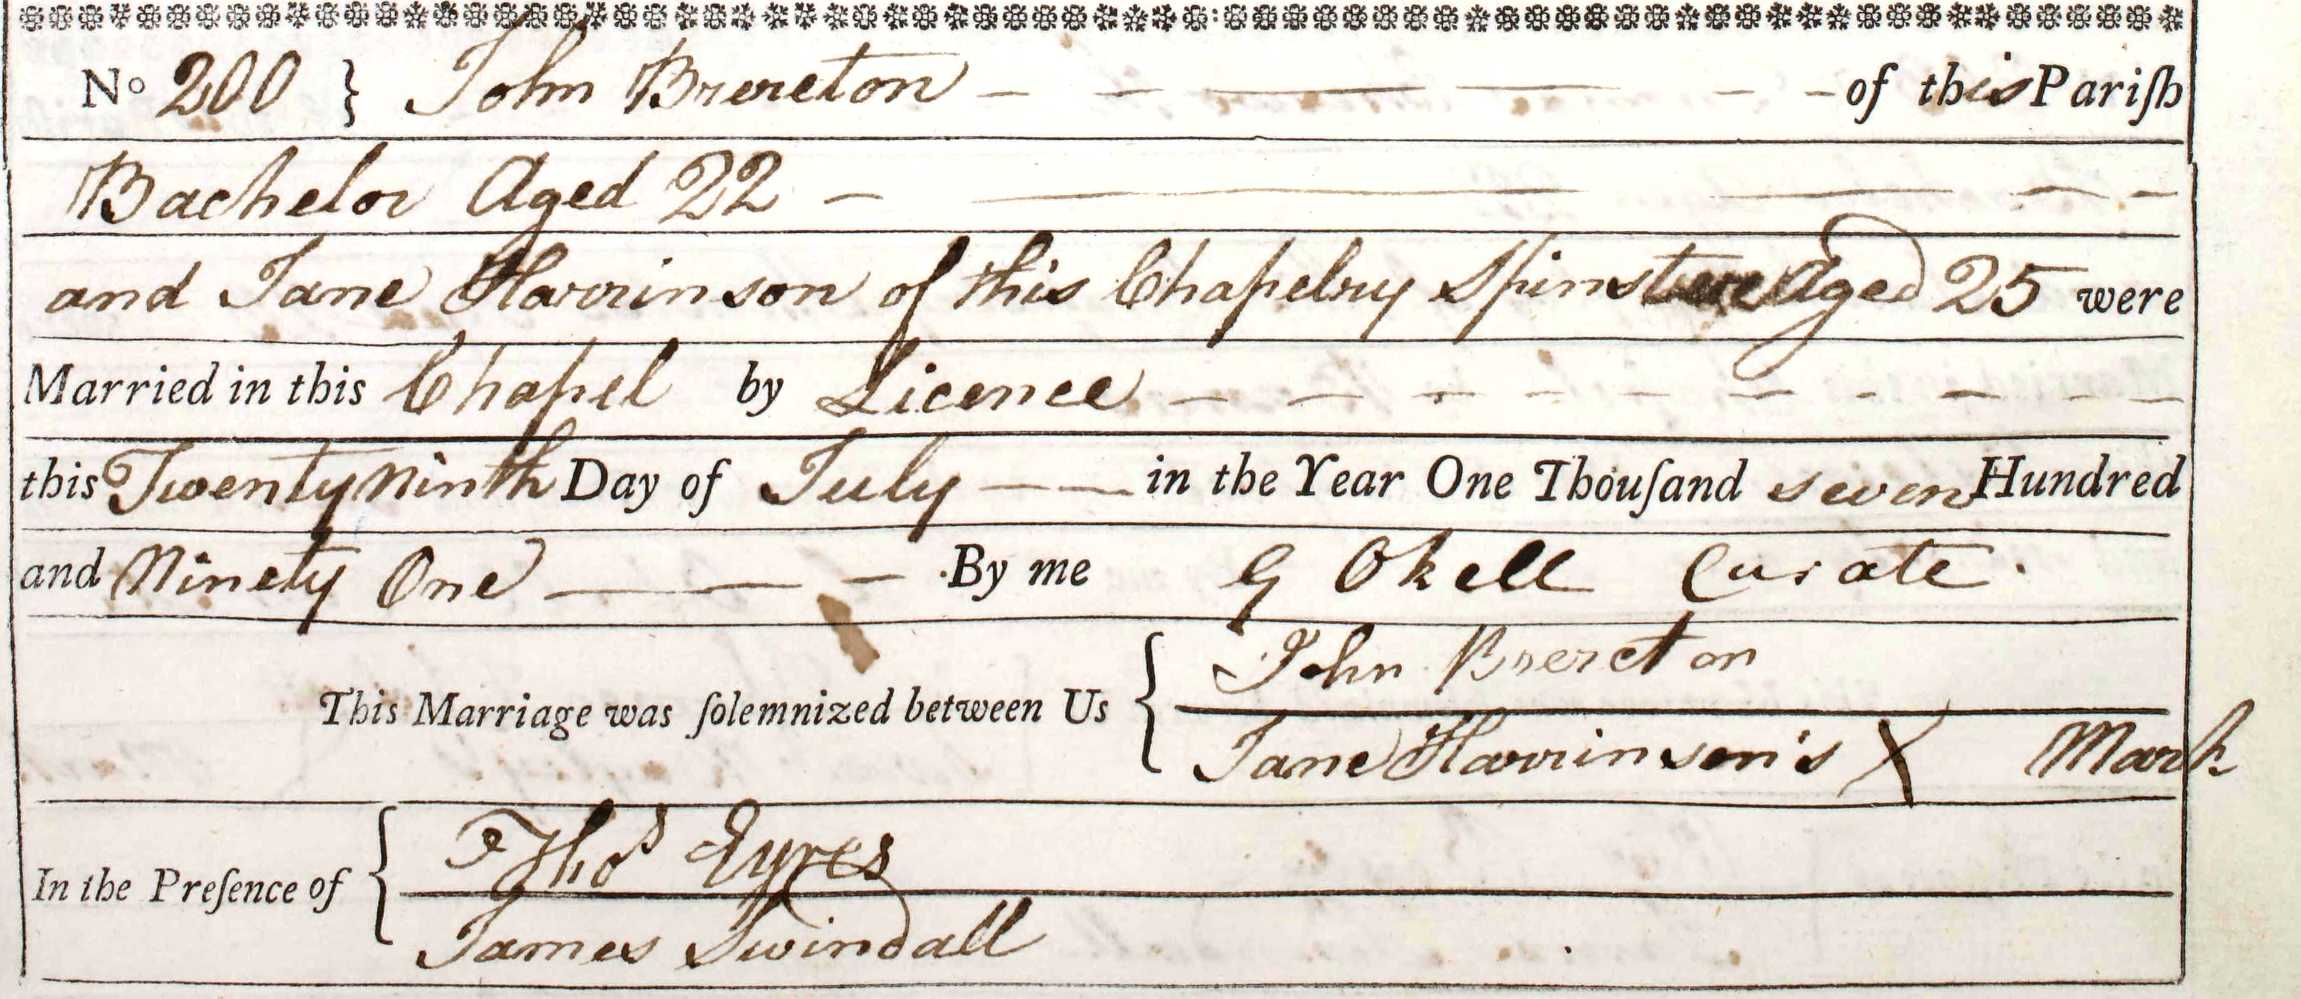 No 200 } John Brereton — — — — — — of this Pariſh
Bachelor Aged 22 — — — — —
and Jane Harrinson of this Chapelry Spinster Aged 25 were
Married in this Chapel by Licence — — — — — — — — — —
this Twenty Ninth Day of July — — in the Year One Thouſand seven Hundred
and Ninety One — — — By me G Okell Curate.
This Marriage was ſolemnized between Us { John Brereton
Jane Harrinson's X Mark
In the Preſence of { Thos Eyres
James Swindall